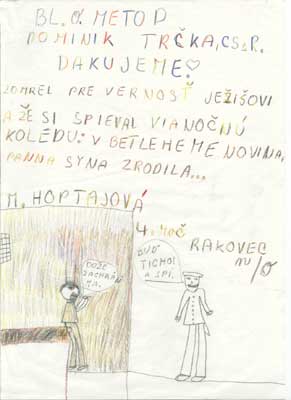 BL. O. METOD
DOMINIK TRČKA, CSsR.
ĎAKUJEME!
ZOMREL PRE VERNOSŤ JEŽIŠOVI
A ŽE SI SPIEVAL VIANOČNÚ
KOLEDU: V BETLEHEME NOVINA,
PANNA SYNA ZRODILA...
M. HOPTAJOVÁ
4. ROČ
RAKOVEC
BOŽE
ZACHRÁŇ
MA.
BUĎ
TICHO!
A SPI.